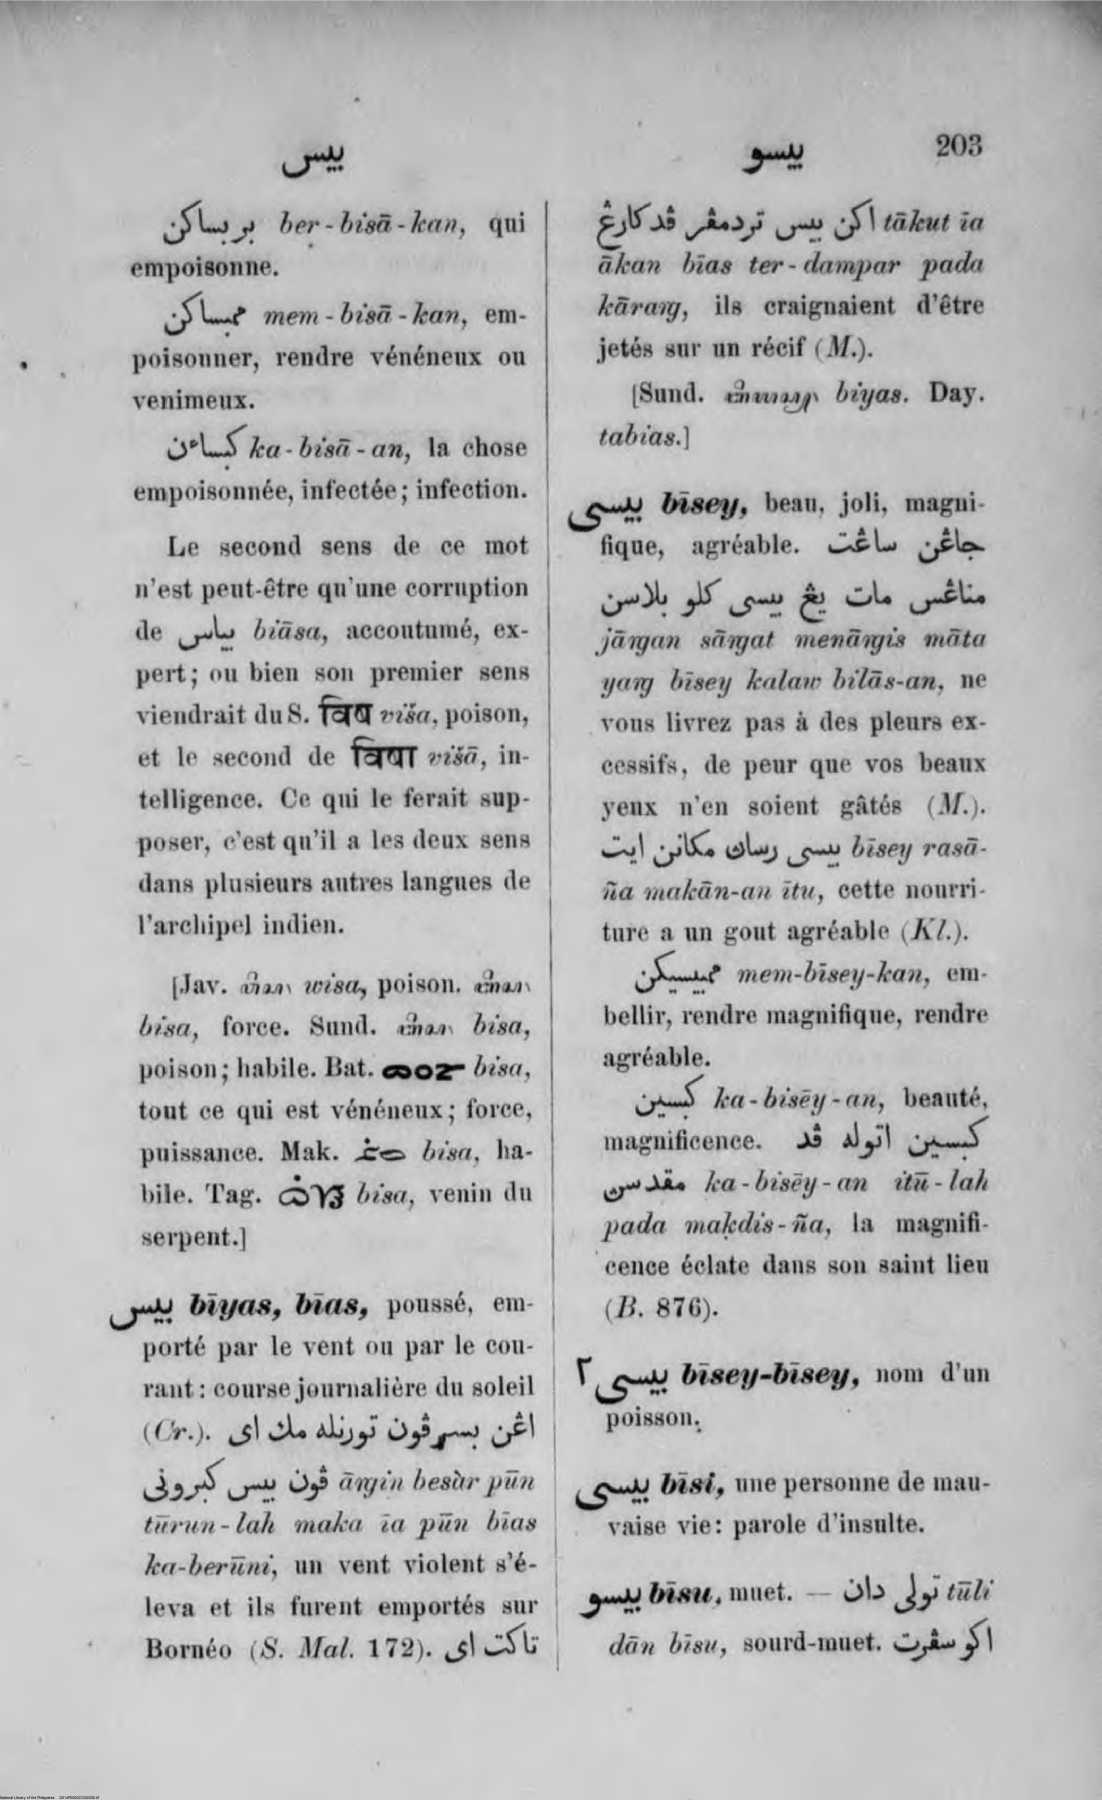 بيس
بيسو 203
بربساكن ber-bisā-kan, qui
empoisonne.
ممبساكن mem-bisā-kan, em-
poisonner, rendre vénéneux ou
venimeux.
كبساءن ka-bisā-an, la chose
empoisonnée, infectée; infection.
Le second sens de ce mot
n'est peut-être qu'une corruption
de بياس biāsa, accoutumé, ex-
pert; ou bien son premier sens
viendrait du S. विष viša, poison,
et le second de विषा višā, in-
telligence. Ce qui le ferait sup-
poser, c'est qu'il a les deux sens
dans plusieurs autres langues de
l'archipel indien.
[Jav. wisa, poison.
bisa, force. Sund. bisa,
poison; habile. Bat. bisa,
tout ce qui est vénéneux; force,
puissance. Mak. bisa, ha-
bile. Tag. bisa, venin du
serpent.]
بيس bīyas, bīas, poussé, em-
porté par le vent ou par le cou-
rant: course journalière du soleil
(Cr.). اڠن بسرڤون تورنله مك اى
ڤون بيس كبرونى āngin besàr pūn
tūrun-lah maka īa pūn bīas
ka-berūni, un vent violent s'é-
leva et ils furent emportés sur
Bornéo (S. Mal. 172). تاكت اى
اكن بيس تردمڤر ڤد كارڠ tākut īa
ākan bīas ter-dampar pada
kārang, ils craignaient d'être
jetés sur un récif (M.).
[Sund. biyas. Day.
tabias.]
بيسى bīsey, beau, joli, magni-
fique, agréable. جاڠن ساڠت
مناڠس مات يڠ بيسى كلو بلاسن
jāngan sāngat menāngis māta
yang bīsey kalaw bilās-an, ne
vous livrez pas à des pleurs ex-
cessifs, de peur que vos beaux
yeux n'en soient gâtés (M.).
بيسى رساڽ مكانن ايت bīsey rasā-
ña makān-an ītu, cette nourri-
ture a un gout agréable (Kl.).
ممبيسيكن mem-bīsey-kan, em-
bellir, rendre magnifique, rendre
agréable.
كبسين ka-bisēy-an, beauté,
magnificence. كبسين اتوله ڤد
مقدسڽ ka-bisēy-an itū-lah
pada maḳdis-ña, la magnifi-
cence éclate dans son saint lieu
(B. 876).
بيسى ٢ bīsey-bīsey, nom d'un
poisson.
بيسى bīsi, une personne de mau-
vaise vie: parole d'insulte.
بيسو bīsu, muet. — تولى دان tūli
dān bīsu, sourd-muet. اكو سڤرت